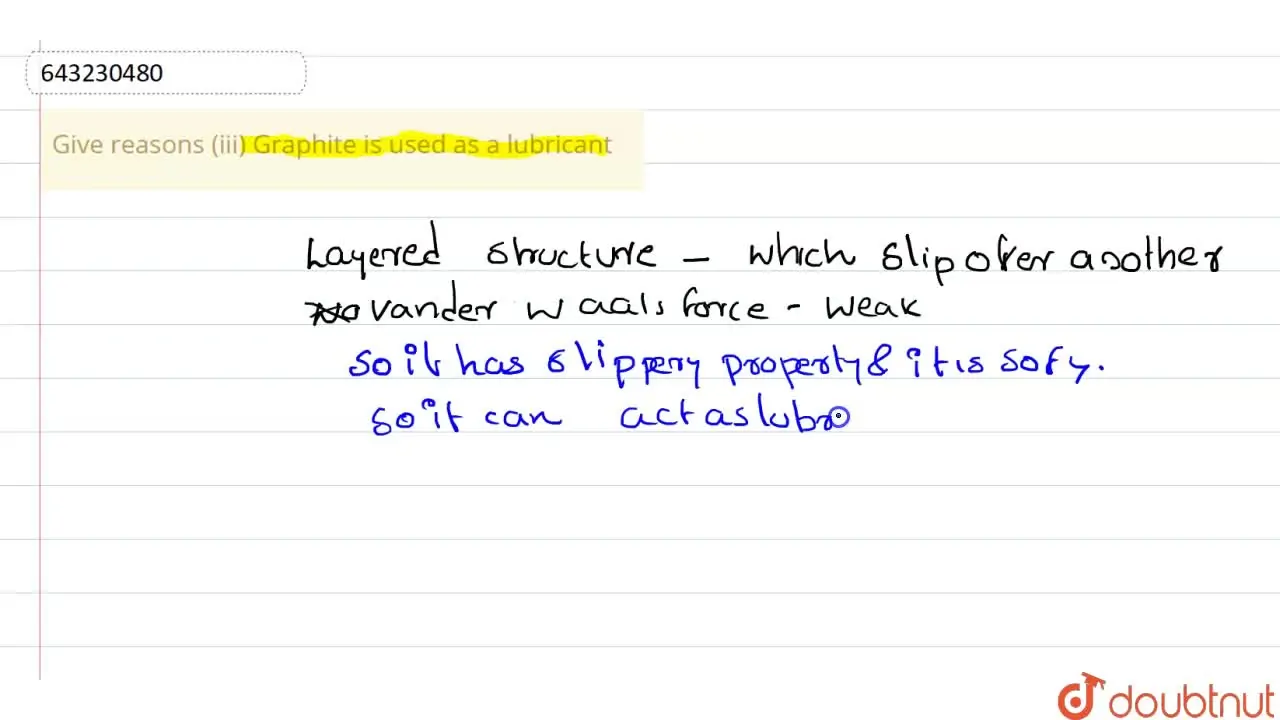 643230480
Give reasons (iii) Graphite is used as a lubricant
Layered structure - which slip over another
vander waals force - weak
so it has slippery property & it is sofy.
so it can act as lubr
doubtnut